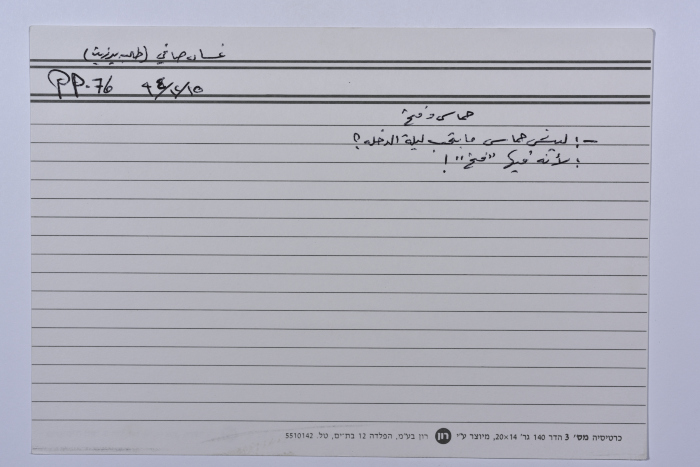 غسان صافي (طالب بيرزيت)
PP-76 ٩٤/٤/١٥
حماس وفتح
- : ليش حماس ما بتحب ليلة الدخله ؟
: لأنه فيها "فتح" !
כרטיסיה מס' 3 הדר 140 גר' 20×14, מיוצר ע"י רון רון בע"מ, הפלדה 12 בת-ים, טל. 5510142